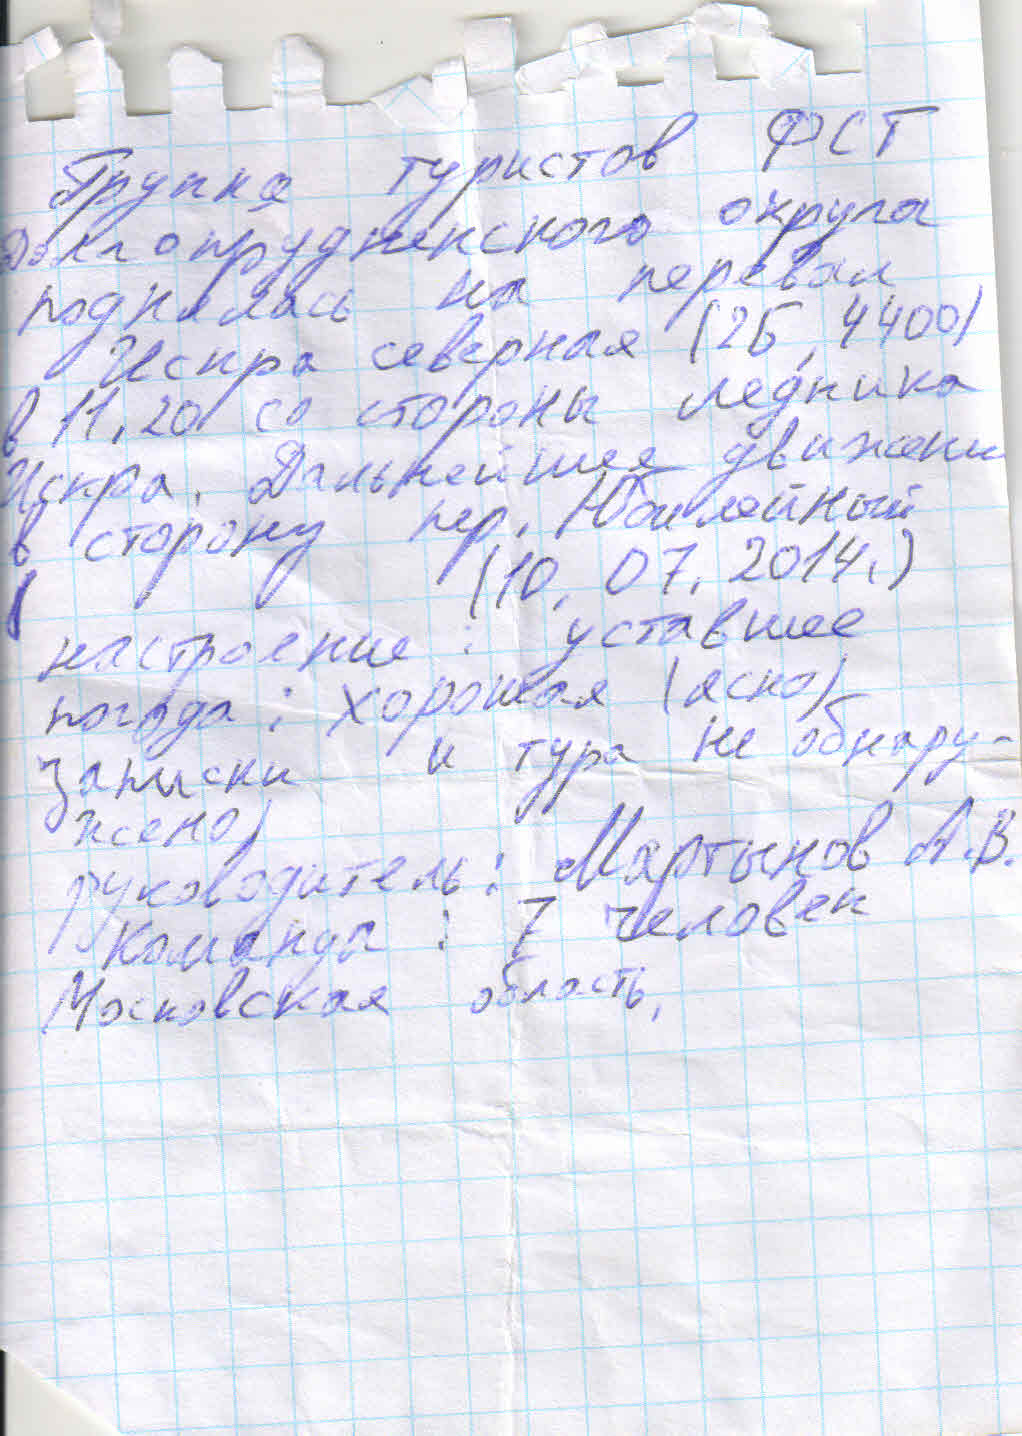 Группа туристов ФСТ
Долгопрудненского округа
поднялась на перевал
Искра северная (2Б, 4400)
в 11,20 со стороны ледника
Искра. Дальнейшее движение
в сторону пер. Юбилейный
(10, 07, 2014.)
настроение: уставшее
погода: хорошая (ясно)
записки и тура не обнару-
жено)
руководитель: Мартынов А.В.
команда: 7 человек
Московская область,